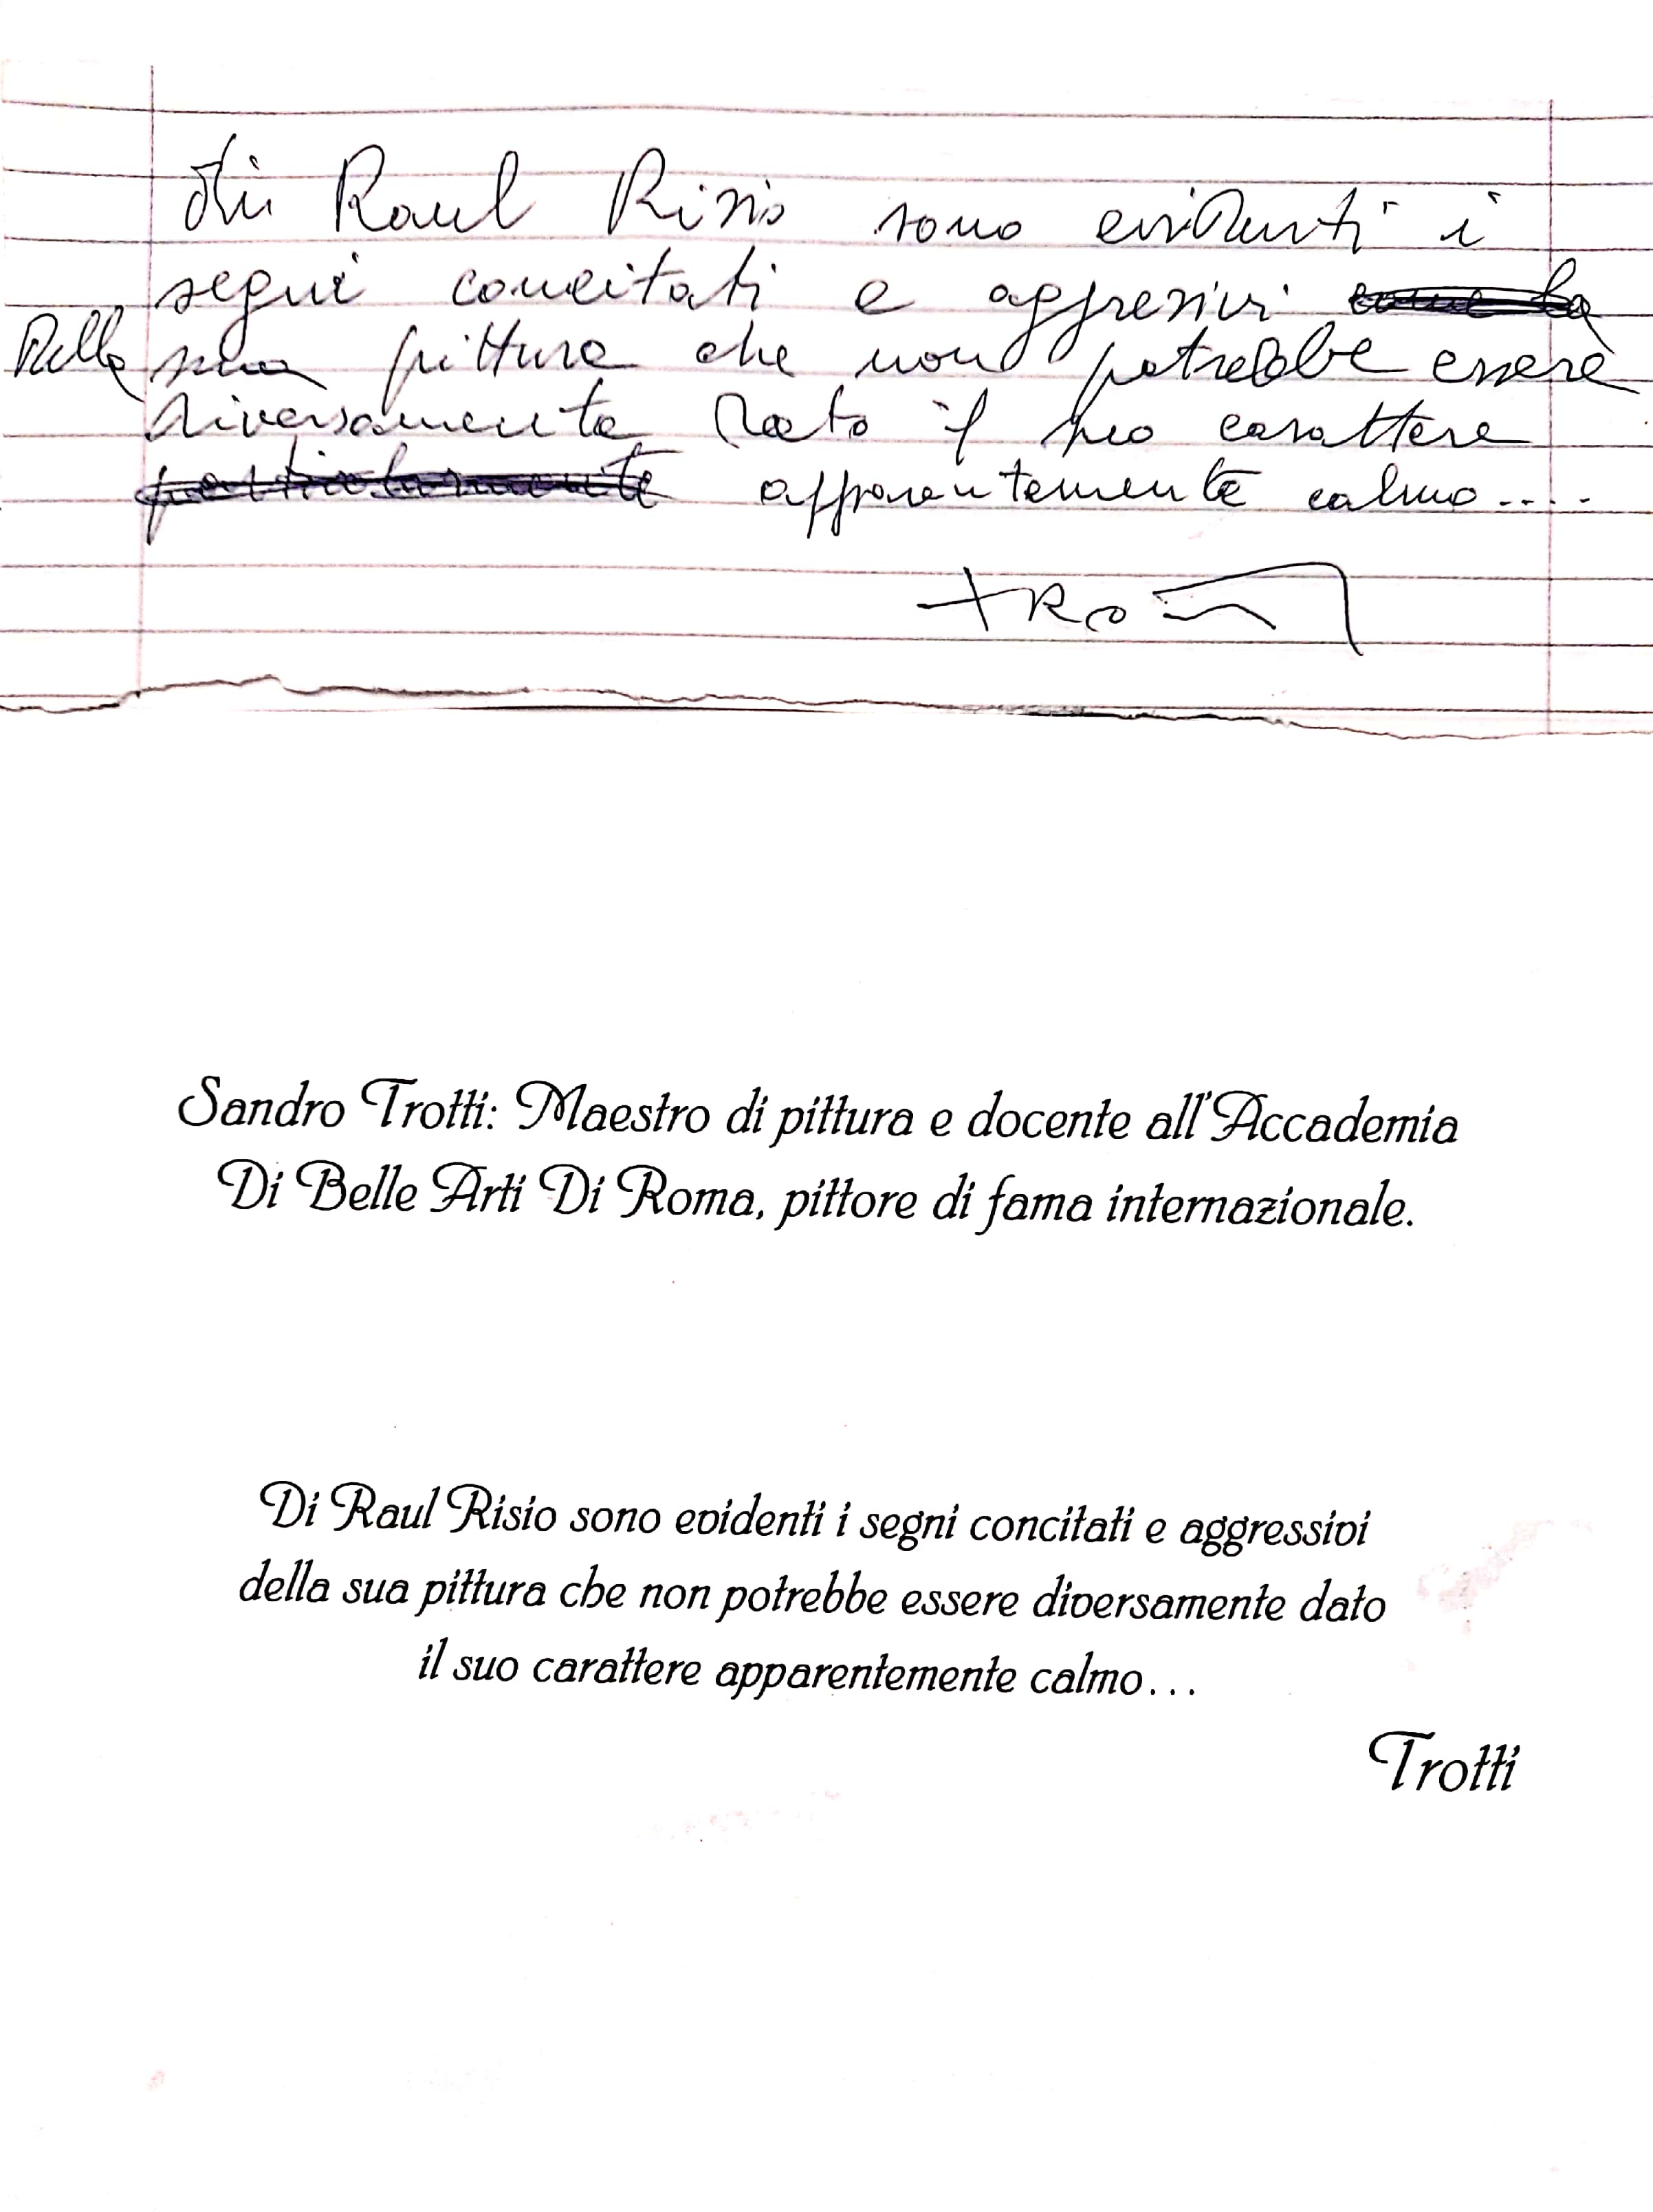 Di Raul Risio sono evidenti i
segni concitati e aggressivi come la
della sua pittura che non potrebbe essere
diversamente dato il suo carattere
particolarmente apparentemente calmo....
TROTTI
Sandro Trotti: Maestro di pittura e docente all'Accademia
Di Belle Arti Di Roma, pittore di fama internazionale.
Di Raul Risio sono evidenti i segni concitati e aggressivi
della sua pittura che non potrebbe essere diversamente dato
il suo carattere apparentemente calmo...
Trotti